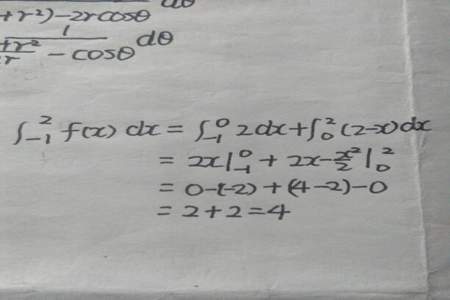 +r²)-2rcosθ dθ
1
+r²/r - cosθ dθ
∫₋₁² f(x) dx = ∫₋₁⁰ 2dx + ∫₀² (2-x)dx
= 2x|₋₁⁰ + 2x - x²/2 |₀²
= 0-(-2) + (4-2)-0
= 2+2=4